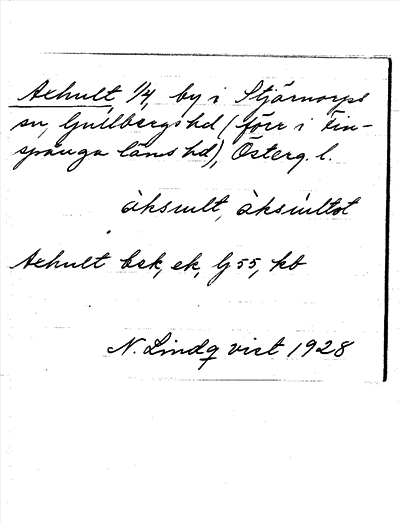 Axhult, 1/4, by i Stjärnorps
sn, Gullbergs hd (förr i Fin-
spånga läns hd), Österg. l.
àksult, àksultot
Axhult bek, ek, G 55, kb
N. Lindqvist 1928